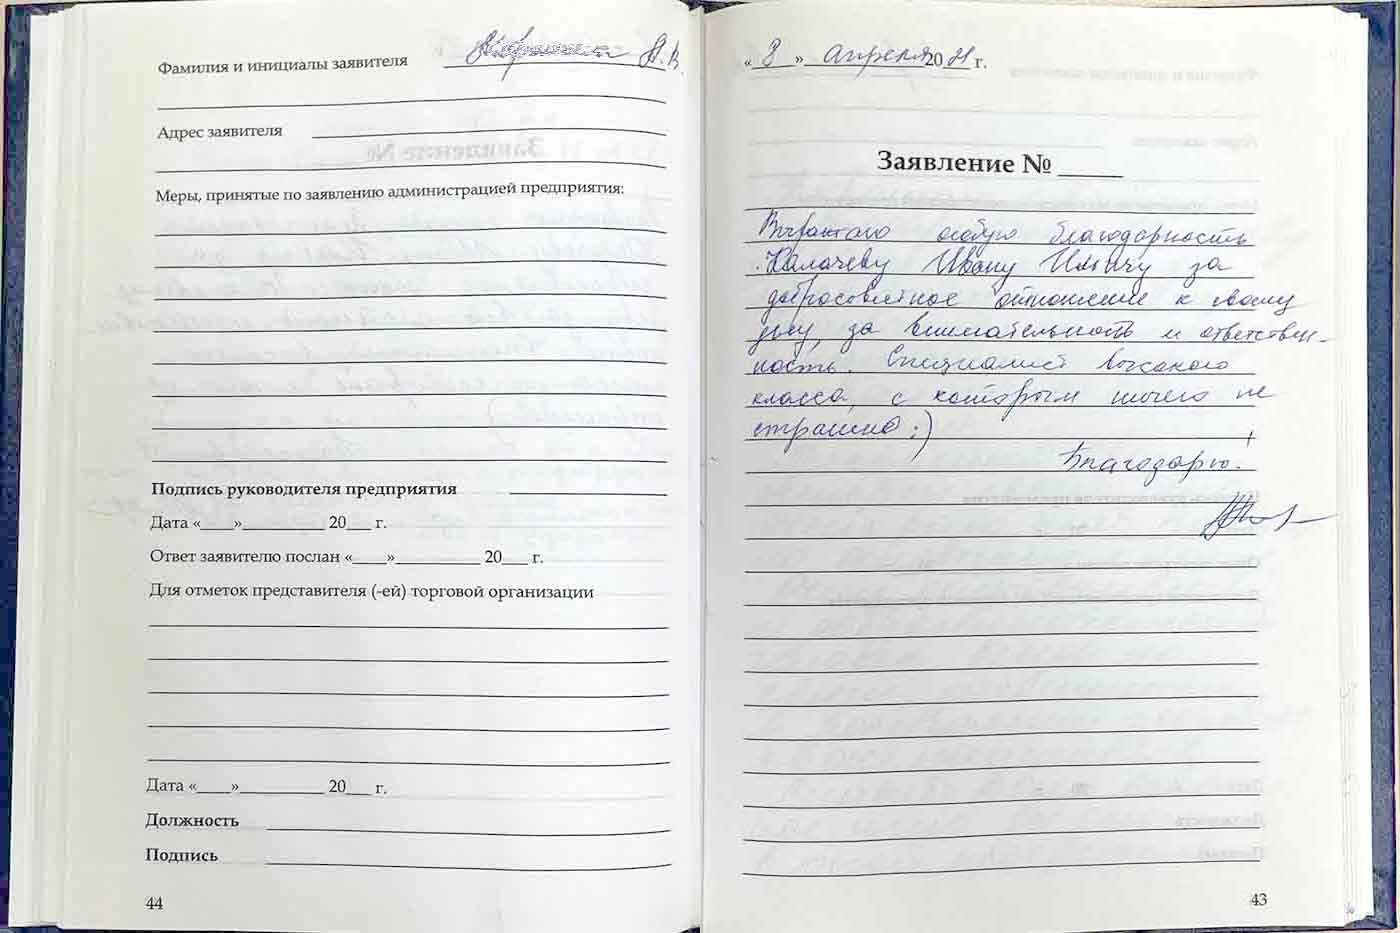 Фамилия и инициалы заявителя А.В.
Адрес заявителя
Меры, принятые по заявлению администрацией предприятия:
Подпись руководителя предприятия
Дата «____»__________ 20___ г.
Ответ заявителю послан «____»__________ 20___ г.
Для отметок представителя (-ей) торговой организации
Дата «____»__________ 20___ г.
Должность
Подпись
44
« 8 » апреля 2021 г.
Заявление № _____
Выражаю особую благодарность
Калачеву Ивану Ильичу за
добросовестное отношение к своему
делу, за внимательность и ответствен-
ность. Специалист высокого
класса, с которым ничего не
страшно :)
Благодарю!
43